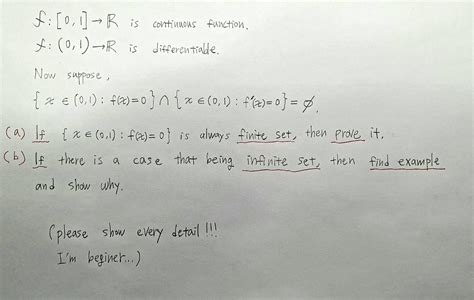 f : [0,1] → ℝ is continuous function.
f : (0,1) → ℝ is differentiable.
Now suppose,
{ x ∈ (0,1) : f(x)=0 } ∩ { x ∈ (0,1) : f'(x)=0 } = ∅.
(a) If { x ∈ (0,1) : f(x)=0 } is always finite set, then prove it.
(b) If there is a case that being infinite set, then find example
and show why.
(please show every detail !!!
I'm beginer...)